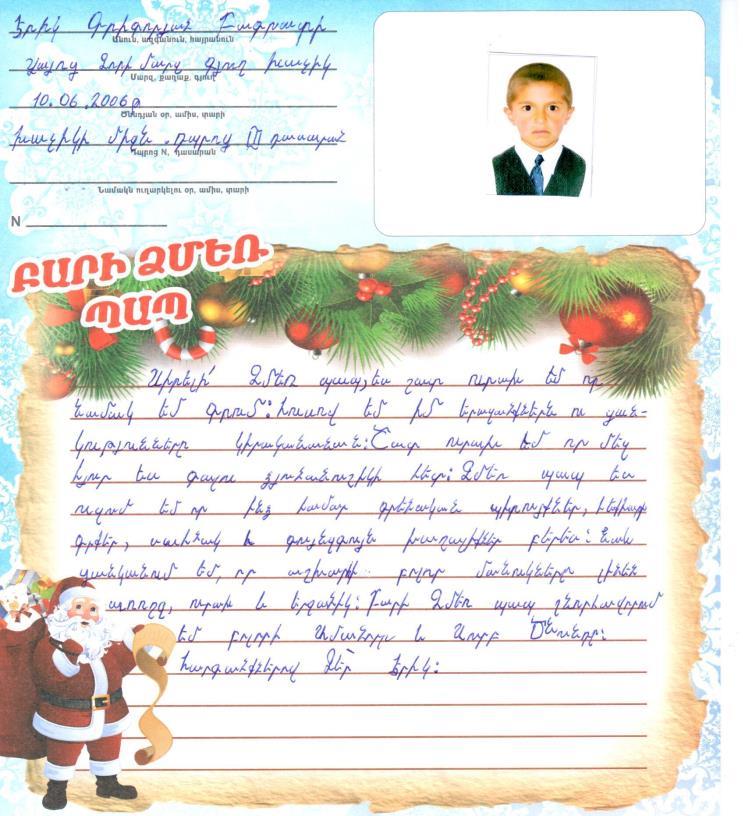 Էրիկ Գրիգորյան Բագրատի
Անուն, ազգանուն, հայրանուն
Վայոց Ձորի մարզ գյուղ Խաչիկ
Մարզ, քաղաք, գյուղ
10.06.2006թ
Ծննդյան օր, ամիս, տարի
Խաչիկի միջն. դպրոց III դասարան
Դպրոց N, դասարան
Նամակն ուղարկելու օր, ամիս, տարի
N
ԲԱՐԻ ՁՄԵՌ
ՊԱՊ
Սիրելի՛ Ձմեռ պապ, ես շատ ուրախ եմ որ
նամակ եմ գրում: Հուսով եմ իմ երազանքներն ու ցան-
կությունները կիրականանան: Շատ ուրախ եմ որ մեզ
հյուր ես գալու Ձյունանուշիկի հետ: Ձմեռ պապ ես
ուզում եմ որ ինձ համար գրենական պիտույքներ, հեքիաթ
գրքեր, սահնակ և գույնզգույն խաղալիքներ բերես: Նաև
ցանկանում եմ, որ աշխարհի բոլոր մանուկները լինեն
առողջ, ուրախ և երջանիկ: Բարի Ձմեռ պապ շնորհավորում
եմ բոլորի Ամանորը և Սուրբ Ծնունդը:
Հարգանքներով Ձեր՝ Էրիկ: